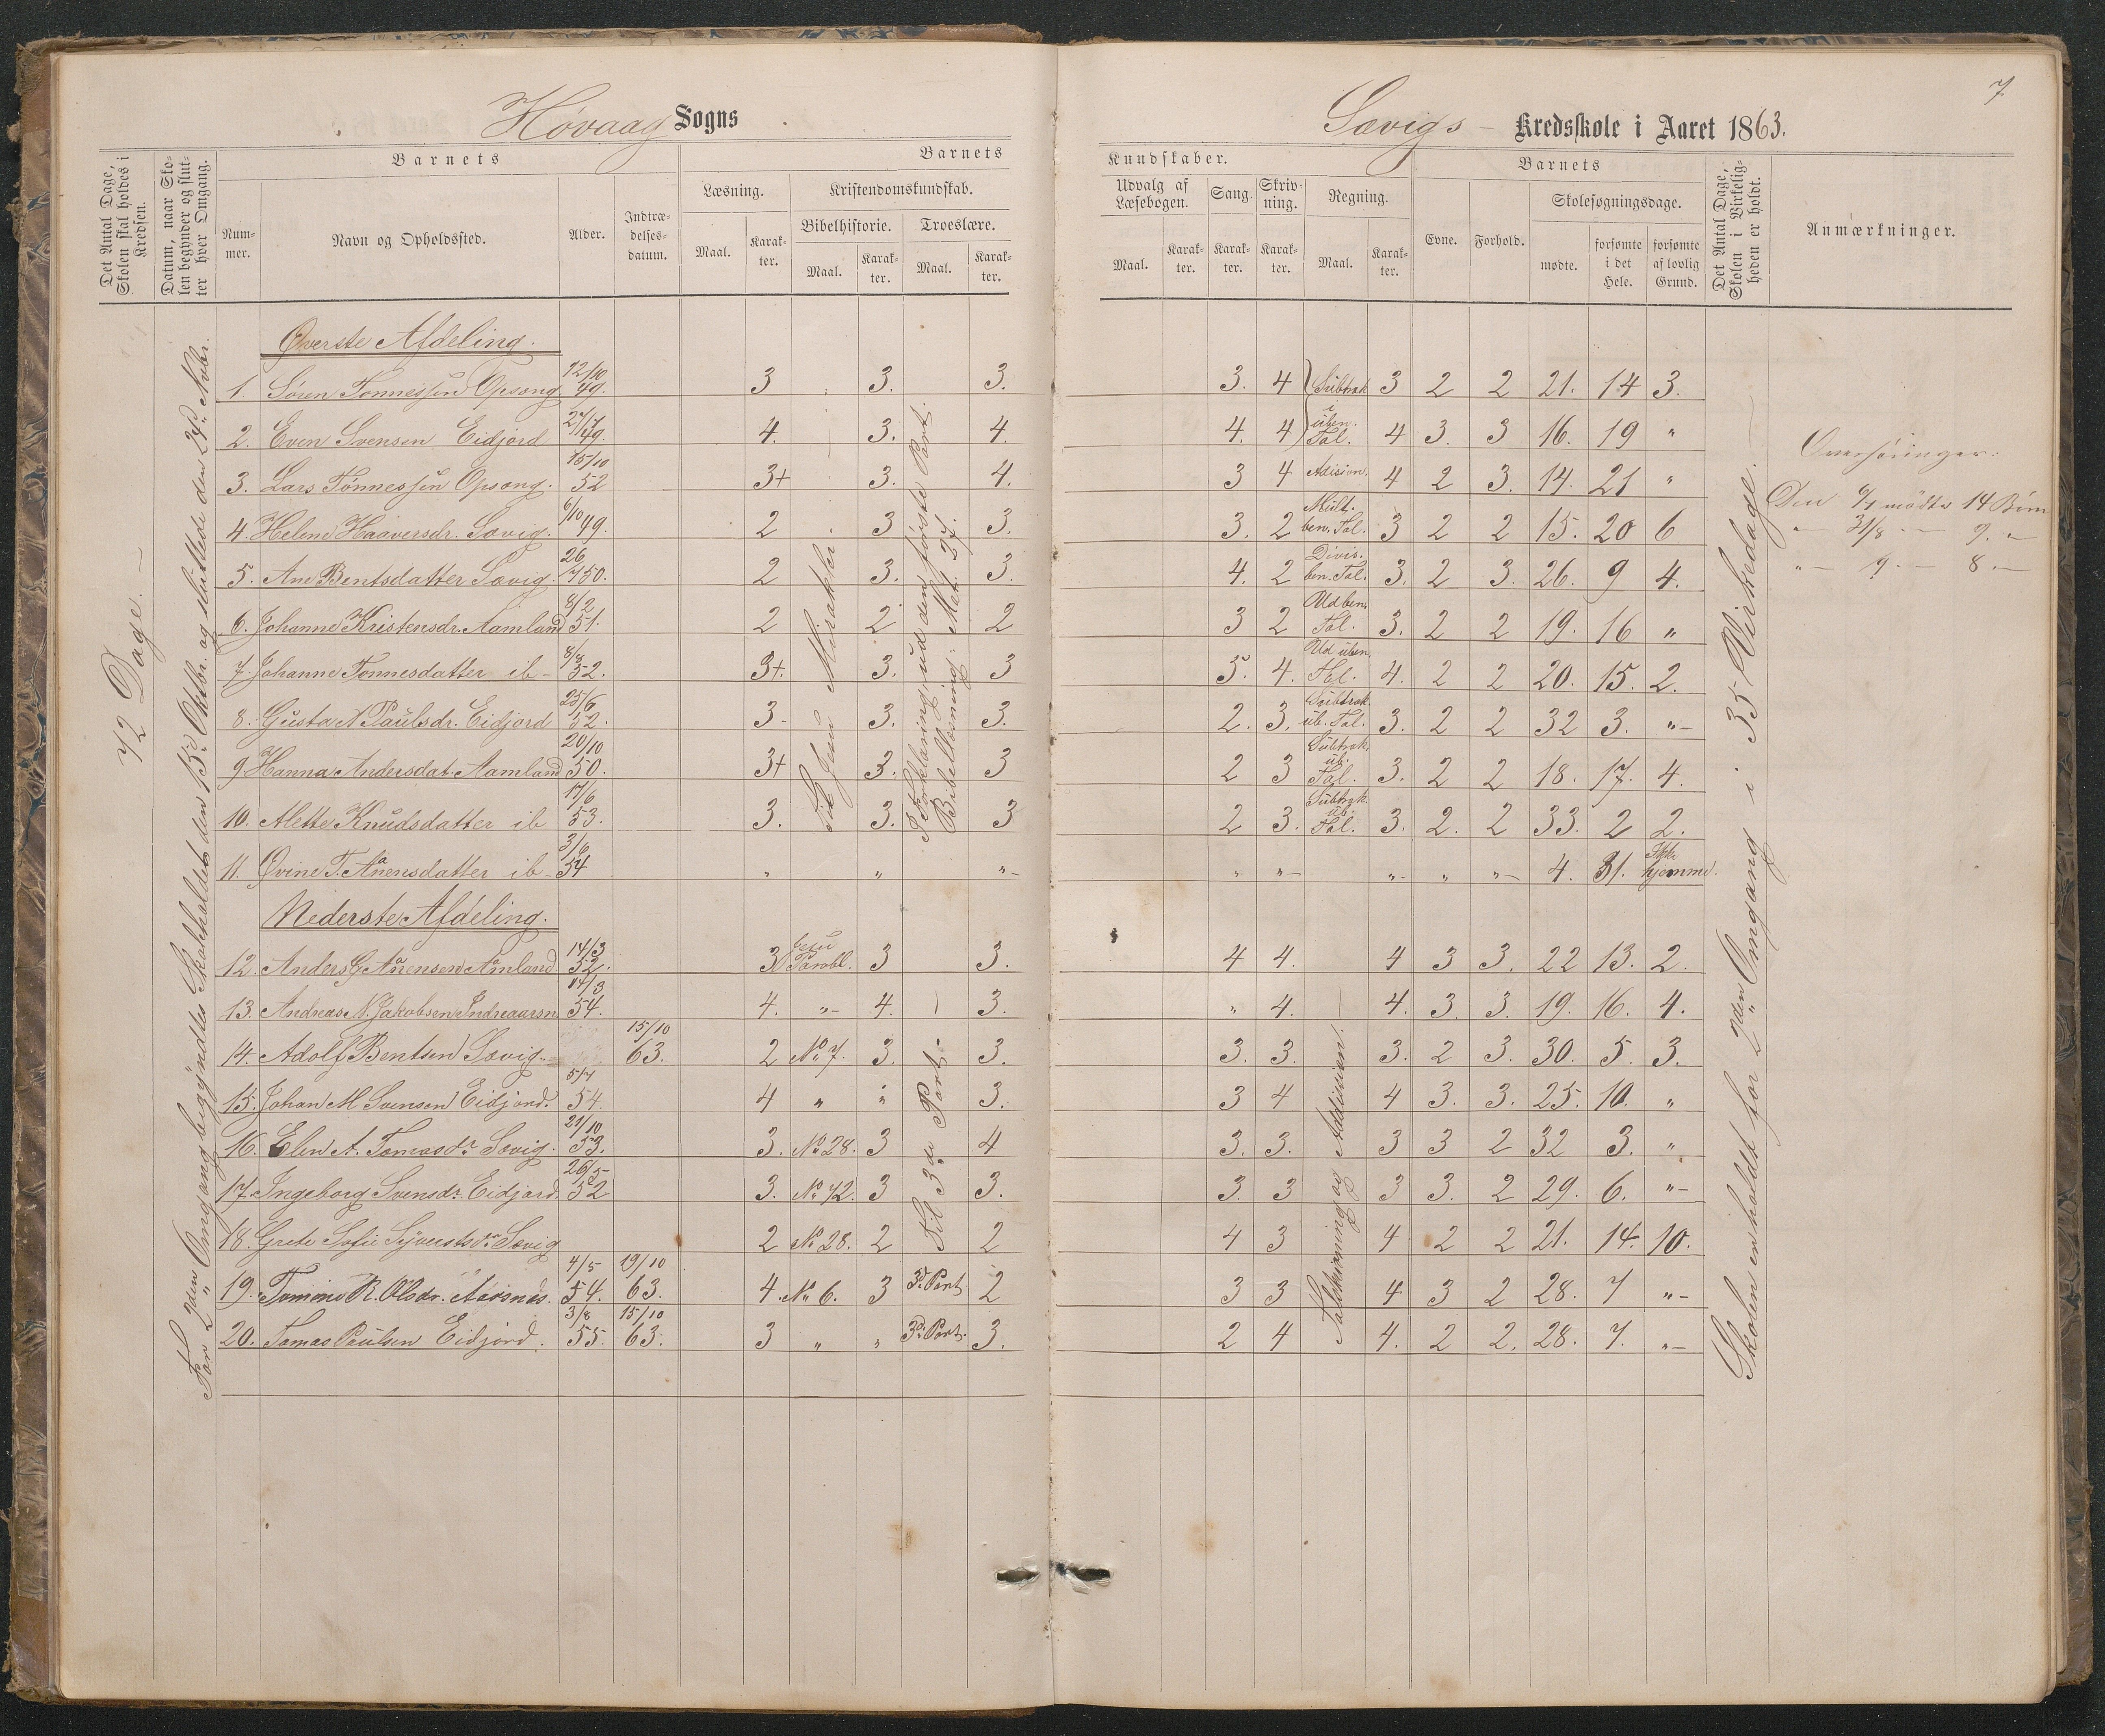 7
Høvaag Sogns
Sævigs - Kredsskole i Aaret 1863.
Det Antal Dage, Skolen skal holdes i Kredsen.
Datum, naar Skolen begynder og slutter hver Omgang.
Barnets
Barnets
Kundskaber.
Barnets
Nummer.
Navn og Opholdssted.
Alder.
Indtrædelsesdatum.
Læsning.
Kristendomskundskab.
Bibelhistorie.
Troeslære.
Maal.
Karakter.
Maal.
Karakter.
Maal.
Karakter.
Udvalg af Læsebogen.
Sang.
Skrivning.
Regning.
Maal.
Karakter.
Karakter.
Karakter.
Maal.
Karakter.
Evne.
Forhold.
Skolesøgningsdage.
mødte.
forsømte i det Hele.
forsømte af lovlig Grund.
Det Antal Dage, Skolen i Virkeligheden er holdt.
Anmærkninger.
72 Dage. —
For 2den Omgang begyndtes Skoleholdet den 15de Oktbr. og sluttede den 24de Novbr.
Til Jesu Mirakler
I Forklaring ud den første Part.
Bibellæsning: Mat. 27.
Øverste Afdeling.
1. Søren Tønnessen Opsong. 12/10 49. 3 3. 3. 3. 4 Subtrak 3 2 2 21. 14 3.
2. Even Svensen Eidjord 27/12 49. 4. 3. 4. 4. 4 i üben. Tal. 4 3. 3 16. 19 "
3. Lars Tønnessen Opsong. 15/10 52 3+ 3. 4. 3 4 Adision. 4 2 3. 14. 21 "
4. Helene Haaversdr. Sævig. 6/10 49. 2 3 3. 3. 2 Mült. ben. Tal. 3 2 2 15. 20 6
5. Ane Bentsdatter Sævig. 26/7 50. 2 3. 3. 4. 2 Divis. ben. Tal. 3. 2 3. 26. 9 4.
6. Johanne Kristensdr. Aamland 8/2 51. 2 2 2 3 2 Ud ben. Tal. 3. 2 2 19. 16 "
7. Johanne Tønnesdatter ib- 8/8 52. 3+. 3. 3 5. 4. Ud üben. Tal. 4. 2 2 20. 15. 2.
8. Gusta N. Paulsdr. Eidjord 25/6 52. 3- 3. 3. 2. 3. Subtrak. üb. Tal. 3. 2 2 32 3. "-
9. Hanna Andersdat. Aamland 20/10 50. 3+ 3. 3 2 3 Subtrak. üb. Tal. 3. 2 2 18. 17. 4.
10. Alette Knudsdatter ib 17/6 53. 3. 3. 3 2 3. Subtrak. üb. Tal. 3. 2. 2 33. 2 2.
11. Øvine T. Aanensdatter ib- 3/6 54 " " "- " "- "- " "- 4. 31. Ikke hjemme.
Nederste Afdeling.
12. Anders G. Aanensen Aamland 14/3 52. 3 Jesu Parabl. 3 3. 4 4. 4 3 3. 22 13. 2.
13. Andreas N. Jakobsen 14/3 54. 4. "- 4. 3. " 4. 4. 3. 3. 19. 16. 4.
14. Adolf Bentsen Sævig. 15/10 63. 2 No 7. 3. 3. 3. 3. 3. 2 3. 30. 5. 3.
15. Johan M. Svensen Eidjord. 5/7 54. 4 " " 3. 3 4 4 3. 3. 25. 10. "
16. Elen A. Tomasdr Sævig. 29/10 53. 3. No 28. 3 4 3. 3. 3 3 2 32 3. "
17. Ingeborg Svensdr. Eidjord. 26/5 52 3. No 42. 3 3. 3. 3 3 3. 2 29. 6. "-
18. Grete Sofie Syvertsdr Sævig 2 No 28. 2 2 4 3 4 2 2 21. 14. 10.
19. Tomine R. Olsdr. Aarsnes. 4/5 54. 19/10 63. 4. No 6. 3 3d. Part 2 3 3 4 3 2 28. 7 "-
20. Tomas Paulsen Eidjord. 3/8 55. 15/10 63. 3 " " 3d. Part. 3. 2 4 4. 2 2. 28. 7. "-
Til 3de Part-
Taltkivning og Addision.
Skolen er holdt for 2den Omgang i 35 Virkedage.
Overhøringer:
Den 6/7 mødte 14 Børn
"- 31/8 - 9. "-
"- 9. - 8 -